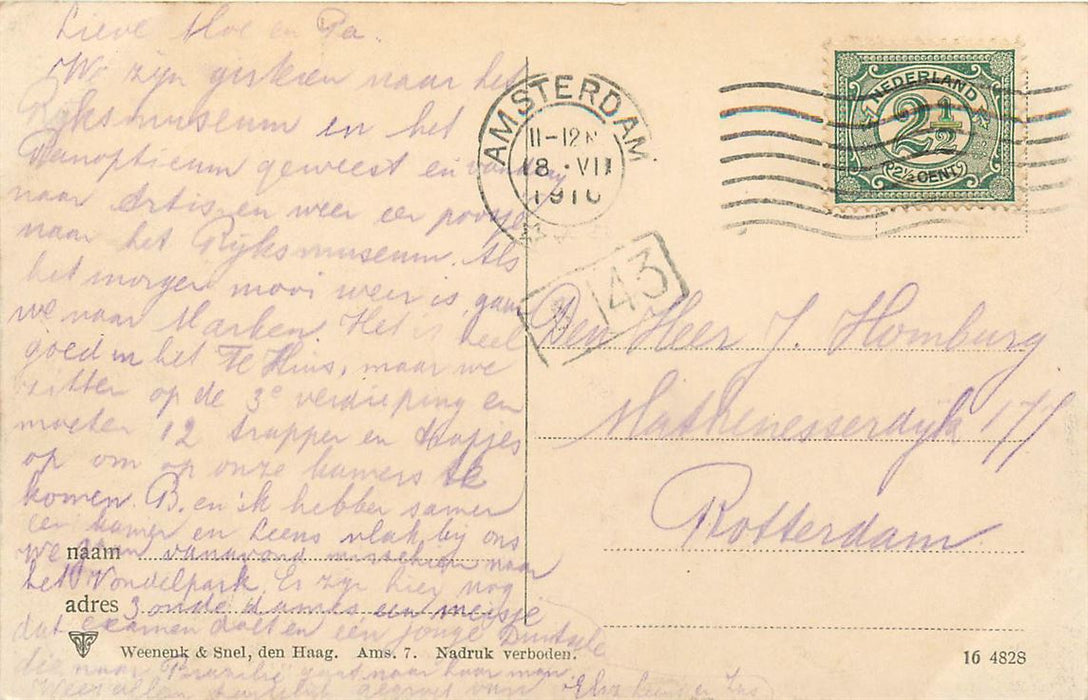 Lieve Moe en Pa.
We zijn gisteren naar het
Rijksmuseum en het
Panopticum geweest en vandaag
naar Artis en weer een poosje
naar het Rijksmuseum. Als
het morgen mooi weer is, gaan
we naar Marken. Het is heel
goed in het Te Huis, maar we
zitten op de 3e verdieping en
moeten 12 trappen en stapjes
op om op onze kamers te
komen. B. en ik hebben samen
een kamer en Leens vlak bij ons
We gaan vanavond misschien naar
het Vondelpark. Er zijn hier nog
3 oude dames een meisje
dat examen doet en een jonge Duitsche
die naar Brazilië gaat naar haar man.
gegroet van
AMSTERDAM
11-12 N
18 · VII
1910
43
NEDERLAND
2 1/2
2 1/2 CENT
Den Heer J. Homburg
Mathenesserdijk 177
Rotterdam
naam
adres
Weenenk & Snel, den Haag. Ams. 7. Nadruk verboden.
16 4828